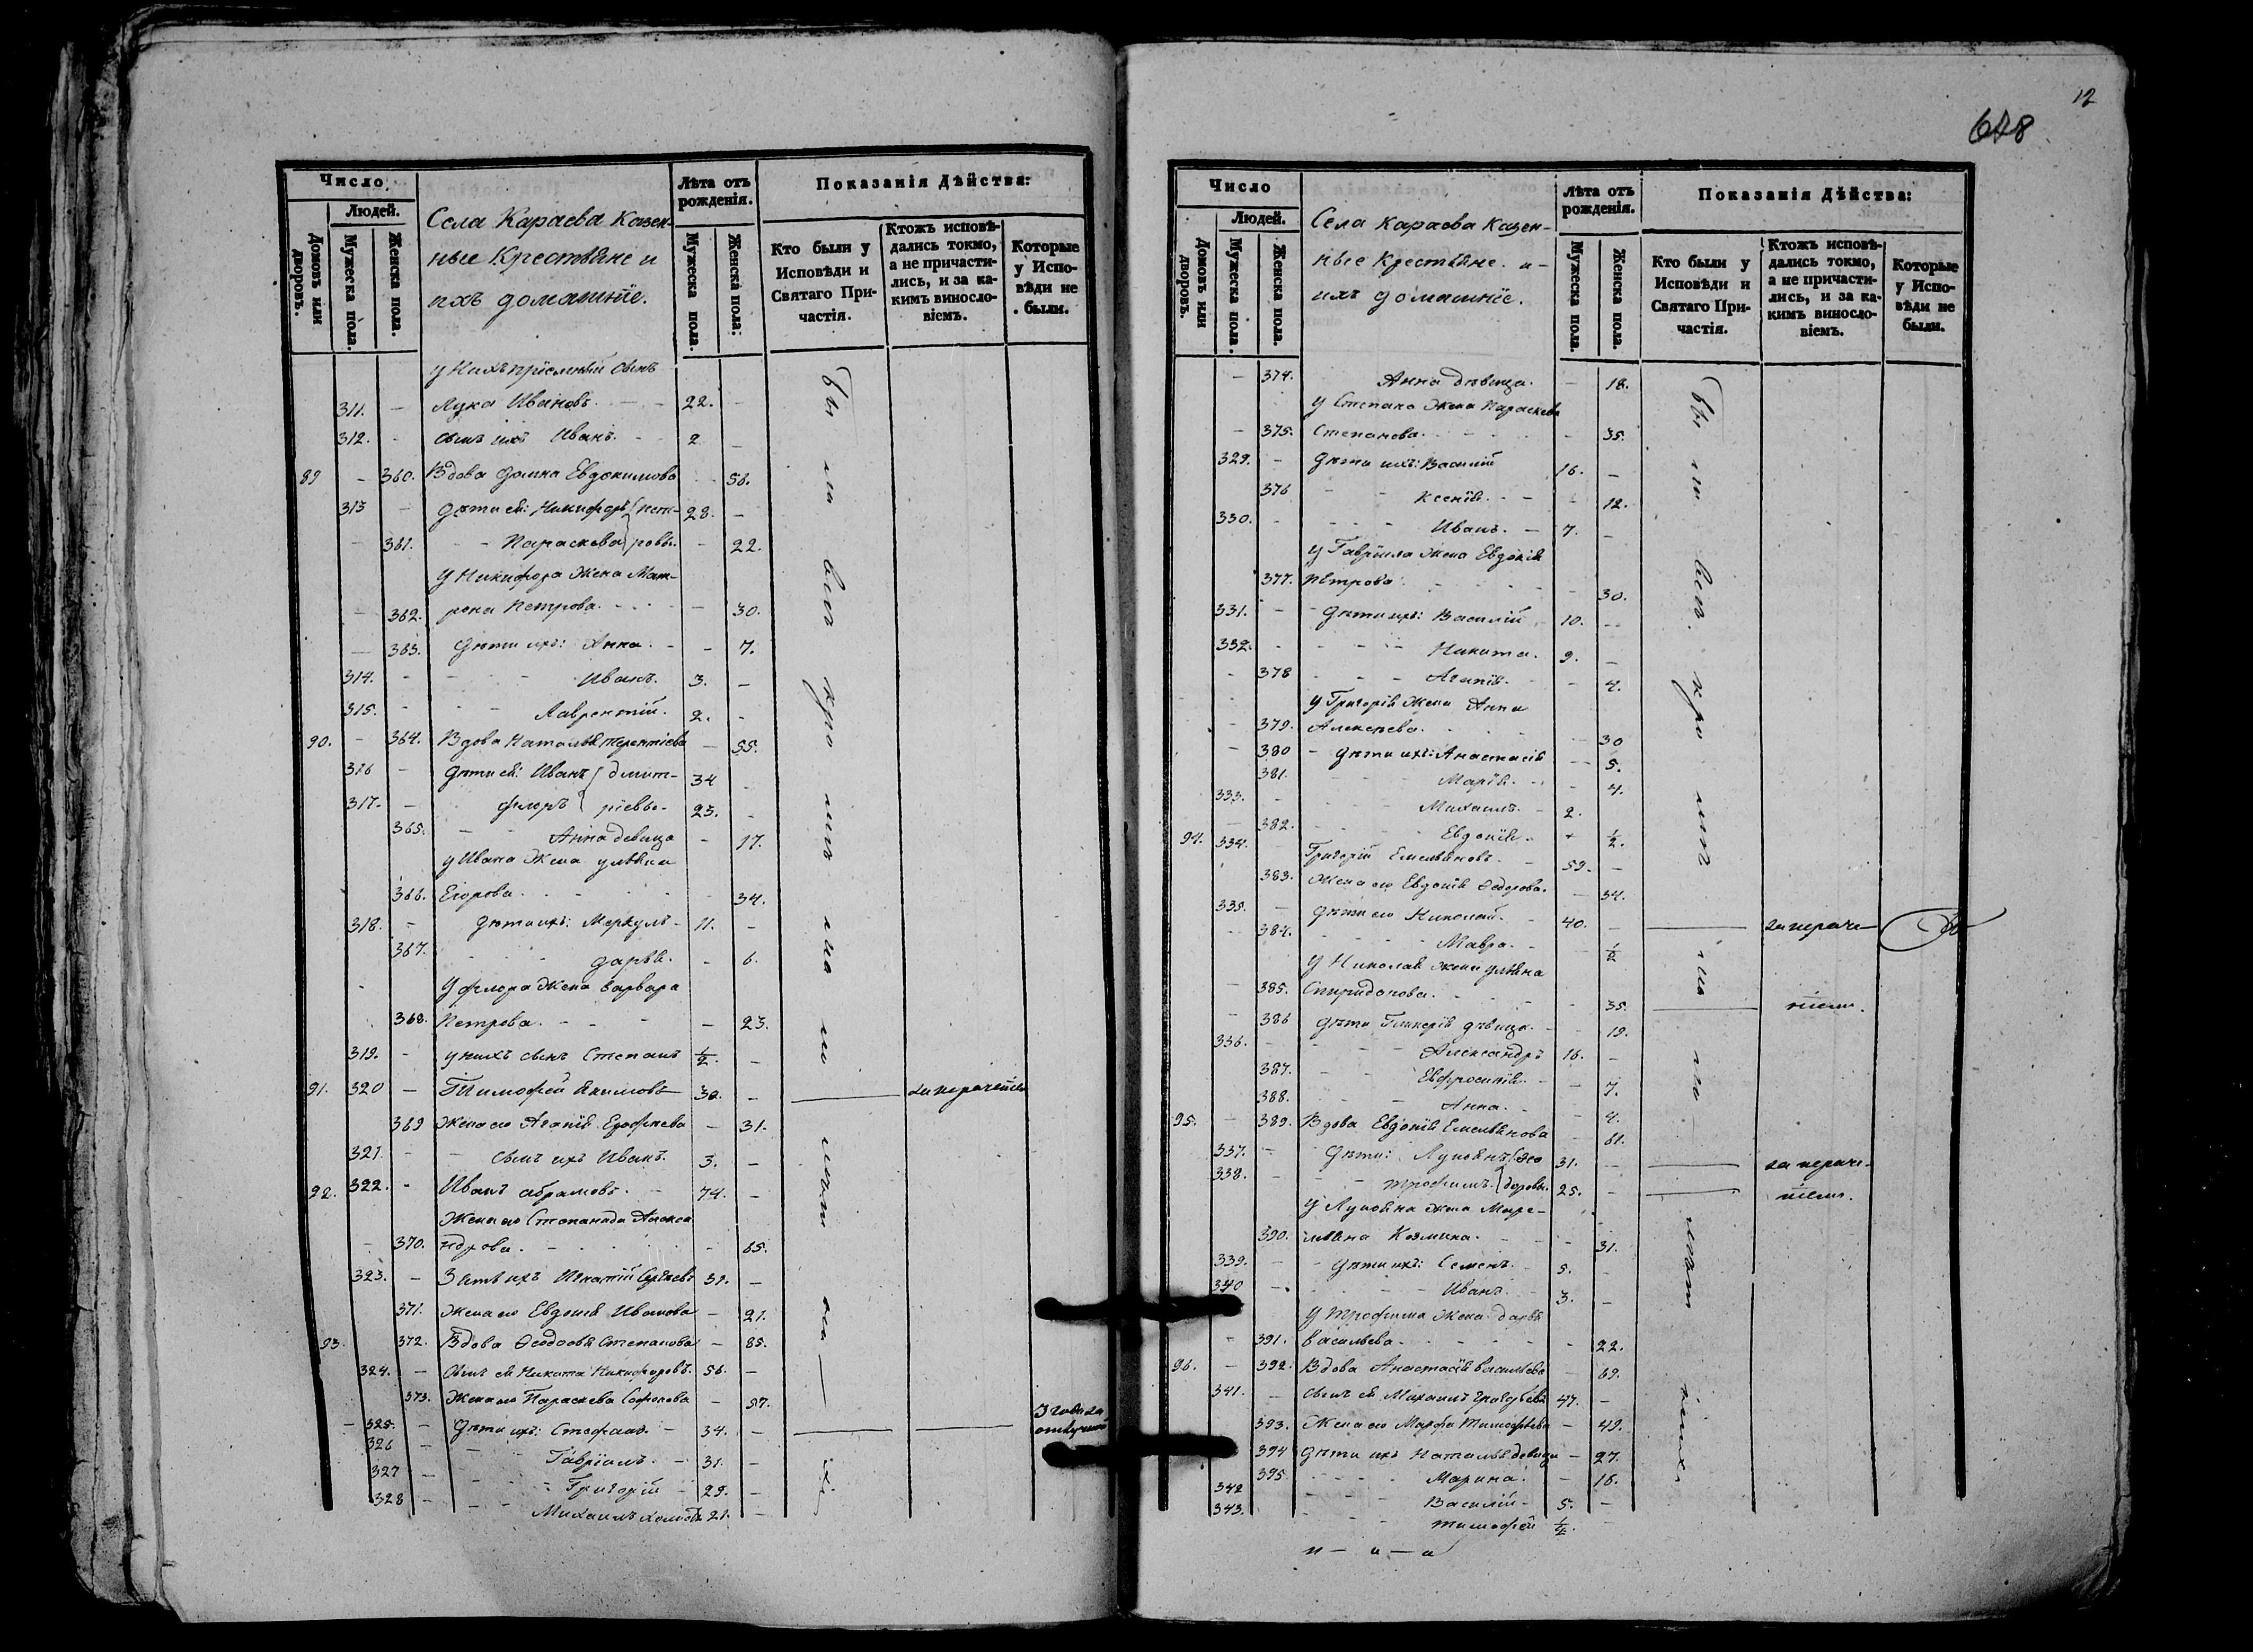 12
648
Число
Людей.
Домовъ или дворовъ.
Мужеска пола.
Женска пола.
Села Караева Казен-
ные Крестьяне и
ихъ домашніе.
Лѣта отъ рожденія.
Мужеска пола.
Женска пола:
Показанія Дѣйства:
Кто были у Исповѣди и Святаго Причастія.
Ктожъ исповѣдались токмо, а не причастились, и за какимъ винословіемъ.
Которые у Исповѣди не были.
у Нихъ пріемный сынъ
311. - Лука Ивановъ. 22. -
312. - сынъ ихъ Иванъ. 2 -
89 - 360. Вдова Домна Евдокимова 56.
313 - Дѣти ея: Никифоръ Пет- 28. -
361. - - Параскева ровы. - 22.
У Никифора Жена Мат-
362. рона Петрова. - 30.
363. Дѣти ихъ: Анна. - 7.
314. - Иванъ. 3. -
315. - Лаврентій. 2. -
90. - 364. Вдова Наталья Терентіева - 55.
316 - Дѣти ея: Иванъ Дмит- 34 -
317. - Флоръ ріевы. 23. -
365. Анна девица - 17.
у Ивана Жена Ульяна
366. Егорова. 34.
318. - Дѣти ихъ: Меркулъ - 11. -
367. Дарья. - 6.
У Флора Жена Варвара
368. Петрова. - 23.
319. - у нихъ сынъ Степанъ 1/2. -
91. 320 - Тимофей Якимовъ 30. - за нераченіемъ
369 Жена его Агапія Ерофеева - 31.
321. - сынъ ихъ Иванъ. 3. -
92. 322. - Иванъ Абрамовъ. 74. -
Жена его Степанида Алекса
370. ндрова. - 65.
323. - Зять ихъ Игнатій Сергѣевъ 31. -
371. Жена его Евдокія Иванова - 21.
93. 372. Вдова Ѳеодосья Степанова - 85.
324. - Сынъ ея Никита Никифоровъ. 56. -
373. Жена его Параскева Софонова - 57.
325. - Дѣти ихъ: Стефанъ. - 34. -
326 - Гавріилъ. 31. -
327 - Григорій 29. -
328 - Михаилъ холостъ 21. -
Число
Людей.
Домовъ или дворовъ.
Мужеска пола.
Женска пола.
Села Караева Казен-
ные Крестьяне. и-
ихъ домашніе.
Лѣта отъ рожденія.
Мужеска пола.
Женска пола.
Показанія Дѣйства:
Кто были у Исповѣди и Святаго Причастія.
Ктожъ исповѣдались токмо, а не причастились, и за какимъ винословіемъ.
Которые у Исповѣди не были.
- 374. Анна дѣвица. - 18.
У Степана Жена Параскева
- 375. Степанова. - 35.
329. - Дѣти ихъ: Василій 16. -
376 - - Ксенія. - 12.
330. - Иванъ. - 7. -
У Гавріила Жена Евдокія
377. Петрова. - 30.
331. - Дѣти ихъ: Василій 10. -
332. - Никита. 9. -
- 378 Агапія. - 4.
У Григорія Жена Анна
- 379. Алексѣева. 30
- 380 - Дѣти ихъ: Анастасія - 5.
381. Марія. - 4.
333. - Михаилъ. - 2.
- 382. Евдокія. - 1/2.
94. 334. Григорій Емельяновъ. 59. -
383. Жена его Евдокія Ѳедорова. - 54.
335. - Дѣти его Николай. - 40. - за нераче-
- 384. Мавра. - 1/2
У Николая Жена Ульяна
- 385. Спиридонова. - 35. ніемъ.
- 386 Дѣти Гликерія дѣвица. - 19.
336. - Александръ 16. -
387. Евфросинія. - 7.
388. Анна. - 4.
95. - 389. Вдова Евдокія Емельянова - 61.
337. - Дѣти: Лукіянъ Ѳео 31. - за нераче-
338. - Трофимъ. доровы. 25. - ніемъ.
У Лукіяна Жена Маре-
390. мьяна Козмина. 31.
339. - Дѣти ихъ: Семенъ. 5. -
340 - Иванъ. 3. -
У Трофима Жена Дарья
- 391. Васильева. - 22.
96. - 392. Вдова Анастасія Васильева - 69.
341. - Сынъ ея Михаилъ Григорьевъ 47. -
393. Жена его Марфа Тимофѣева - 49.
394 Дѣти ихъ Наталья девица - 27.
395. Марина. - 16.
342 Василій - 5. -
343. Тимофей 1/2. -